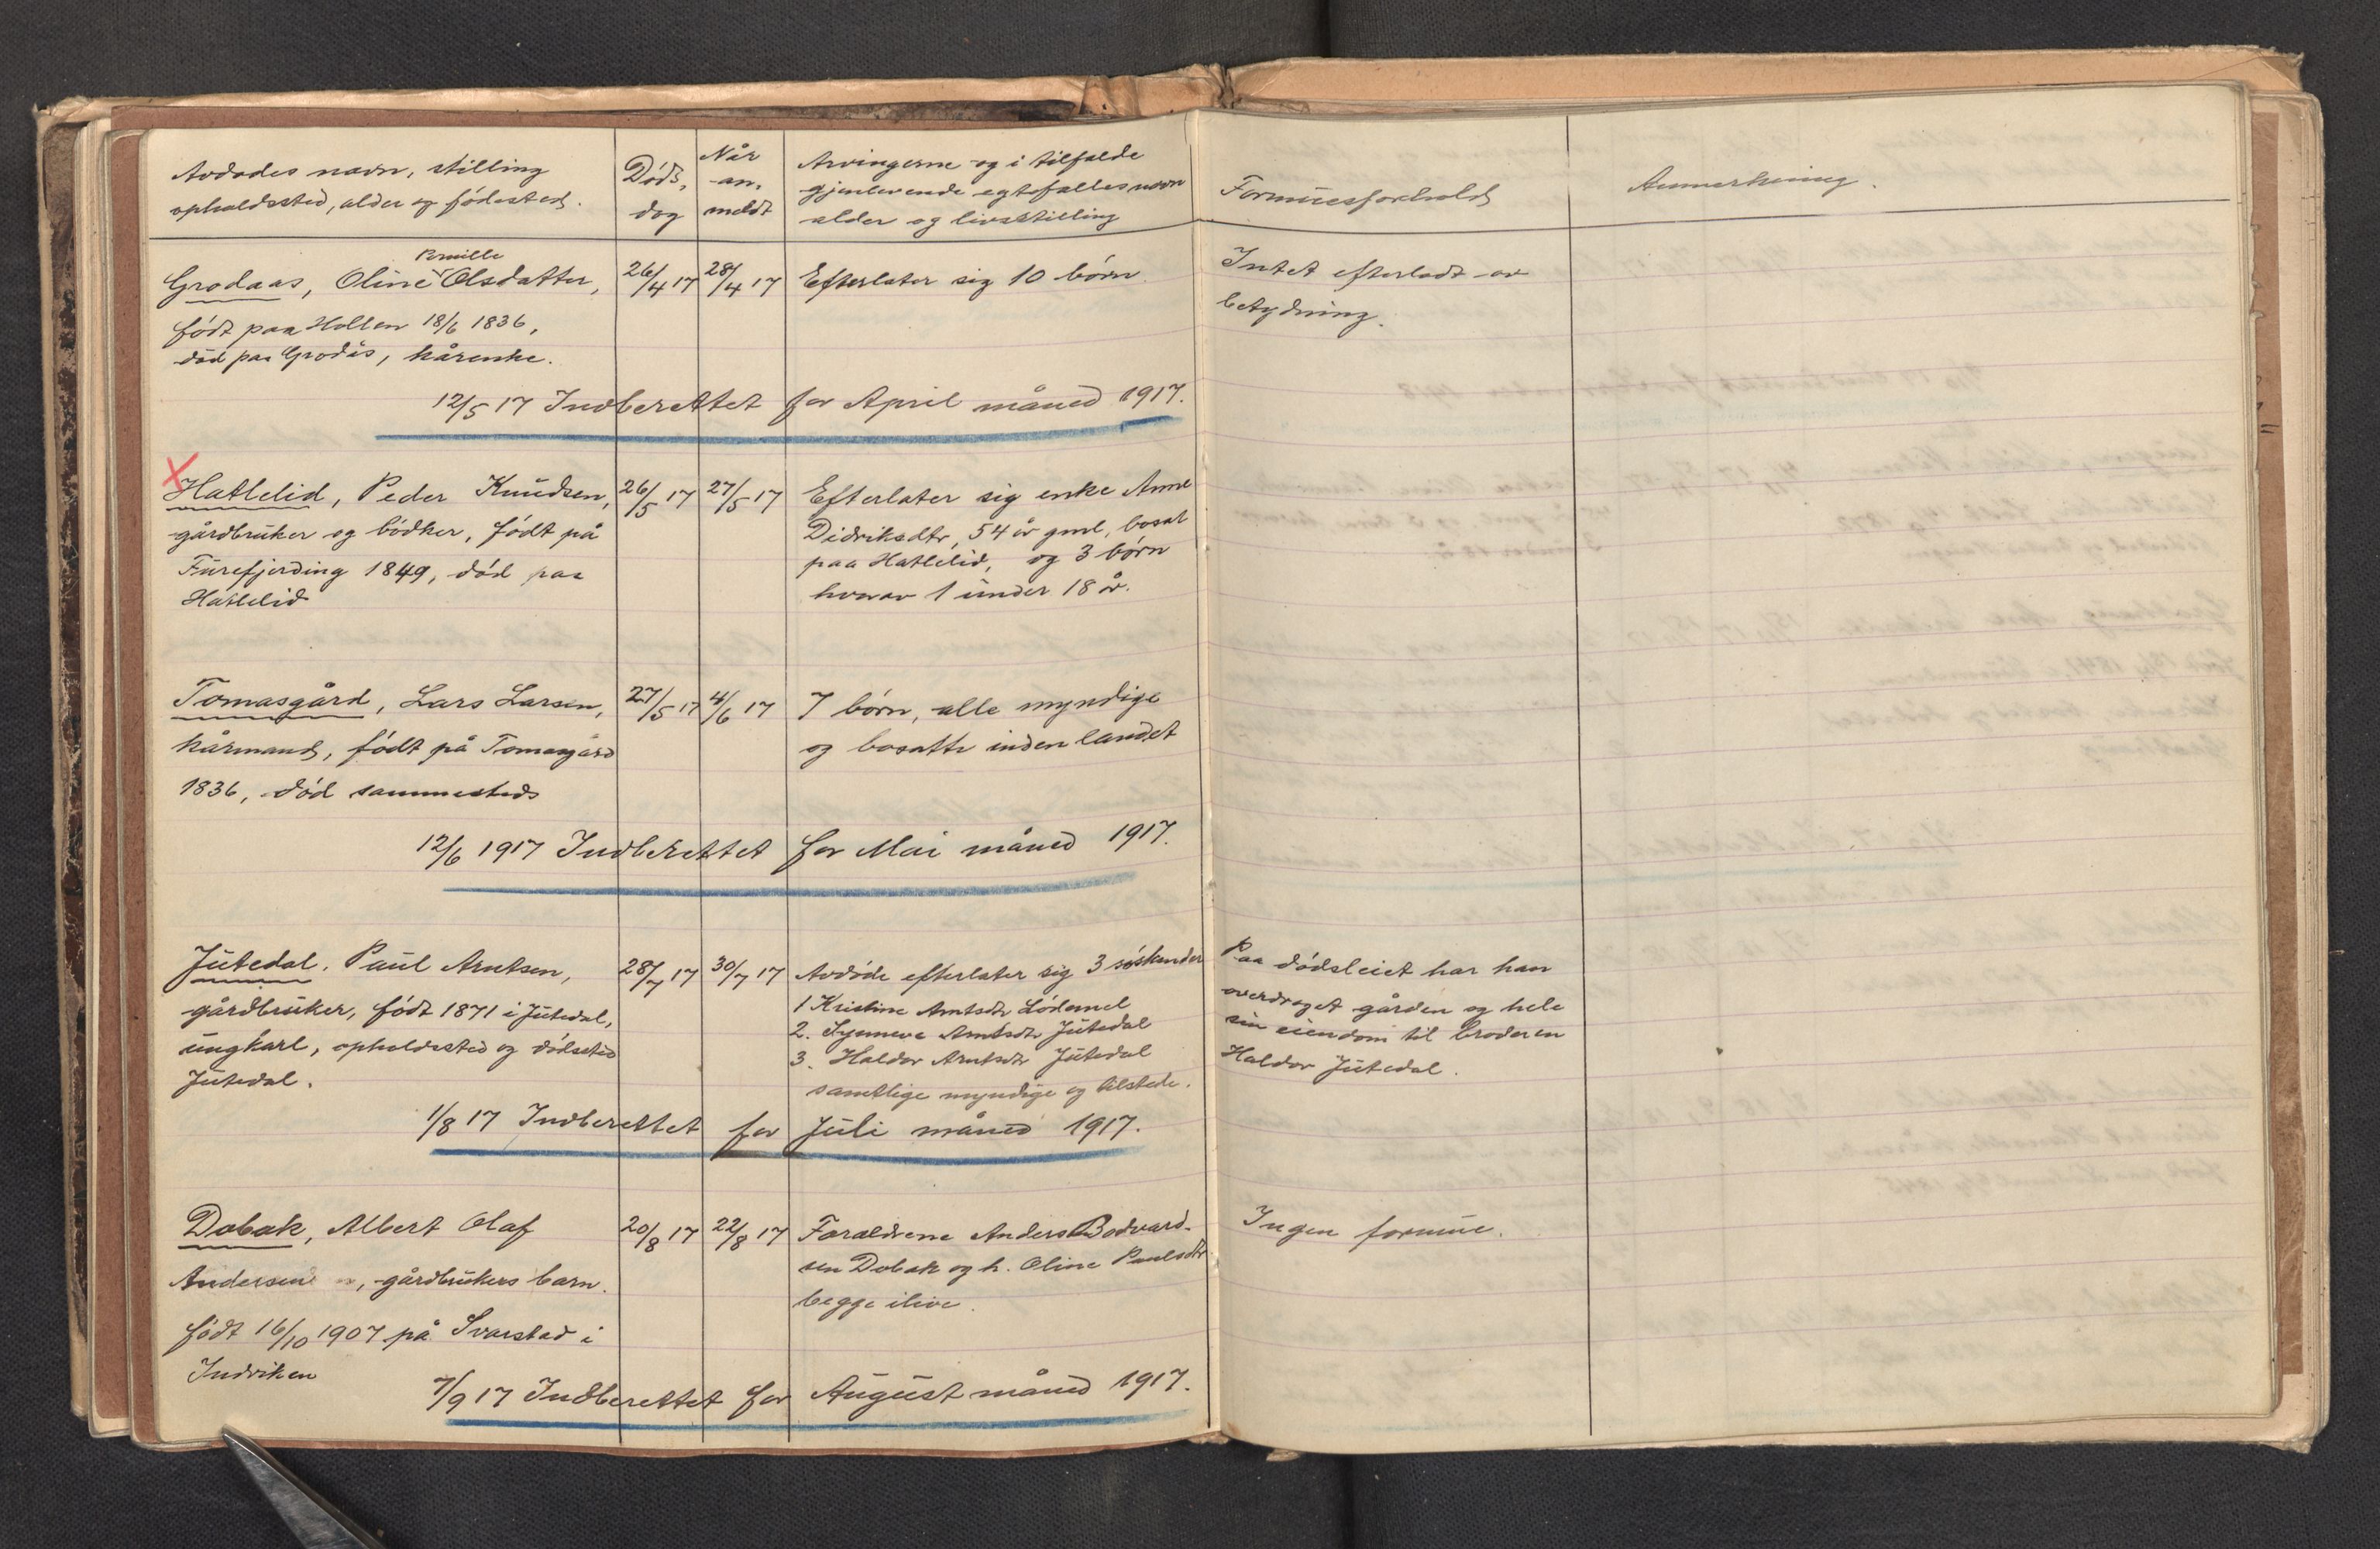 Avdødes navn, stilling
opholdssted, alder og fødested.
Døds-
dag
Når
an-
meldt
Arvingerne og i tilfælde
gjenlevende egtefælles navn
alder og livsstilling
Formuesforhold
Anmerkning.
Pernille
Grodaas, Oline Olsdatter,
født paa Hollen 18/6 1836,
død paa Grodås, kårenke.
26/4 17
28/4 17
Efterlater sig 10 børn
Intet efterladt av
betydning.
12/5 17 Indberettet for April måned 1917.
Hatlelid, Peder Knudsen,
gårdbruker og bødker, født på
Furefjerding 1849, død paa
Hatlelid
26/5 17
27/5 17
Efterlater sig enke Anne
Didriksdtr, 54 år gml, bosat
paa Hatlelid, og 3 børn
hvorav 1 under 18 år.
Tomasgård, Lars Larsen,
kårmand, født på Tomasgård
1836, død sammesteds
27/5 17
4/6 17
7 børn, alle myndige
og bosatte inden landet
12/6 1917 Indberettet for Mai måned 1917.
Jutedal, Paul Arntsen,
gårdbruker, født 1871 i Jutedal,
ungkarl, opholdssted og dødssted
Jutedal.
28/7 17
30/7 17
Avdøde efterlater sig 3 søskender
1 Kristine Arntsdtr Lødemel
2. Synneve Arntsdtr Jutedal
3. Haldor Arntsdtr Jutedal
samtlige myndige og tilstede.
Paa dødsleiet har han
overdraget gården og hele
sin eiendom til broderen
Haldor Jutedal.
1/8 17 Indberettet for Juli måned 1917.
Dobak, Albert Olaf
Andersen, gårdbrukers barn.
født 16/10 1907 på Svarstad i
Indviken
20/8 17
22/8 17
Forældrene Anders Bodvard-
sen Dobak og h. Oline Paulsdtr
begge ilive.
Ingen formue.
7/9 17 Indberettet for August måned 1917.